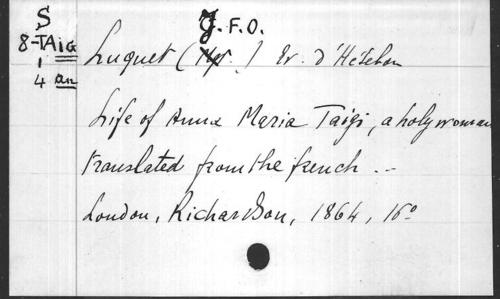 S
8-TAiG
1
4 an
J. F. O.
Luquet (Mgr.) Ev. d'Hésebon
Life of Anna Maria Taigi, a holy woman
translated from the french ..
London, Richardson, 1864, 16º